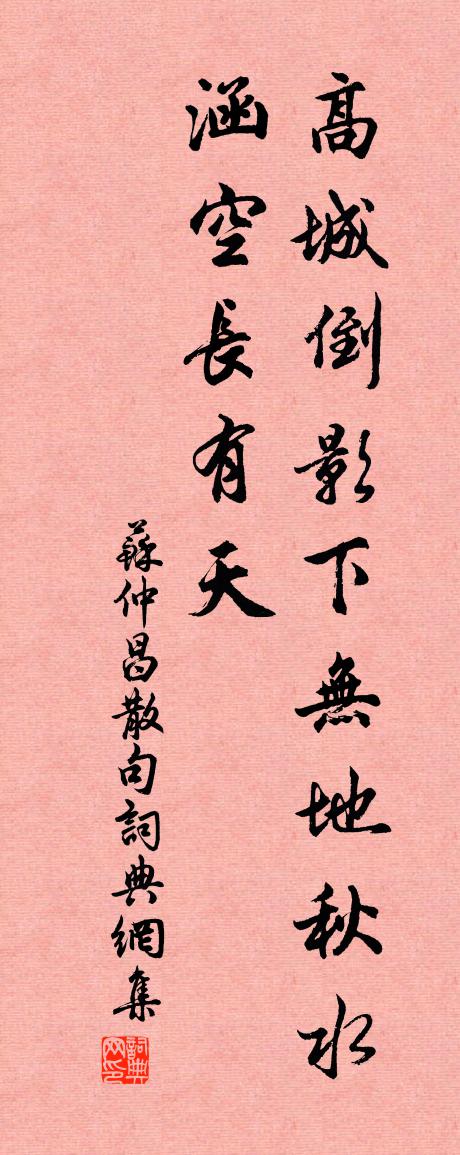 高城倒影下無地秋水
涵空長有天
蘇仲昌散句詞典網集
詞典网印